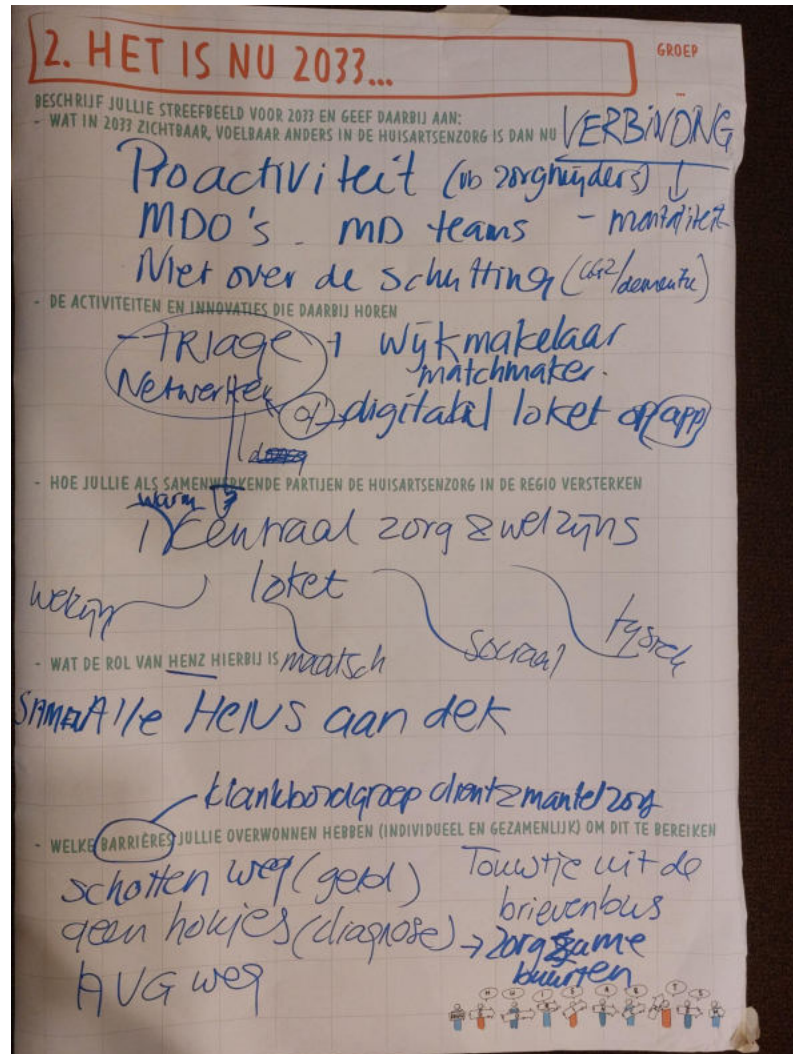 2. HET IS NU 2033...
GROEP
BESCHRIJF JULLIE STREEFBEELD VOOR 2033 EN GEEF DAARBIJ AAN:
- WAT IN 2033 ZICHTBAAR, VOELBAAR ANDERS IN DE HUISARTSENZORG IS DAN NU
VERBINDING
Proactiviteit (vb zorgmijders)
MDO's - MD teams - mentaliteit
Niet over de schutting (GGZ/dementie)
- DE ACTIVITEITEN EN INNOVATIES DIE DAARBIJ HOREN
- TRIAGE + wijkmakelaar
matchmaker.
Netwerken
of digitaal loket op app
- HOE JULLIE ALS SAMENWERKENDE PARTIJEN DE HUISARTSENZORG IN DE REGIO VERSTERKEN
warm
1 Centraal zorg & welzijns
loket
welzijn
maatsch
sociaal
fysiek
- WAT DE ROL VAN HENZ HIERBIJ IS
SAMEN Alle HENS aan dek
klankbordgroep client & mantelzorg
- WELKE BARRIÈRES JULLIE OVERWONNEN HEBBEN (INDIVIDUEEL EN GEZAMENLIJK) OM DIT TE BEREIKEN
schotten weg (geld)
geen hokjes (diagnose)
AVG weg
Touwtje uit de
brievenbus
→ zorgzame
buurten